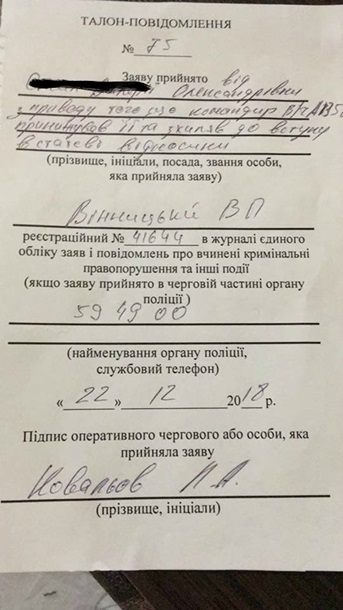 ТАЛОН-ПОВІДОМЛЕННЯ
№ 75
Заяву прийнято від
Олександрівни
з приводу того що командир в/ч
її та схиляв до вступу
в статеві відносини
(прізвище, ініціали, посада, звання особи,
яка прийняла заяву)
Вінницький ВП
реєстраційний № 41644 в журналі єдиного
обліку заяв і повідомлень про вчинені кримінальні
правопорушення та інші події
(якщо заяву прийнято в черговій частині органу
поліції )
59 49 00
(найменування органу поліції,
службовий телефон)
« 22 » 12 2018 р.
Підпис оперативного чергового або особи, яка
прийняла заяву
Ковальов П.А.
(прізвище, ініціали)